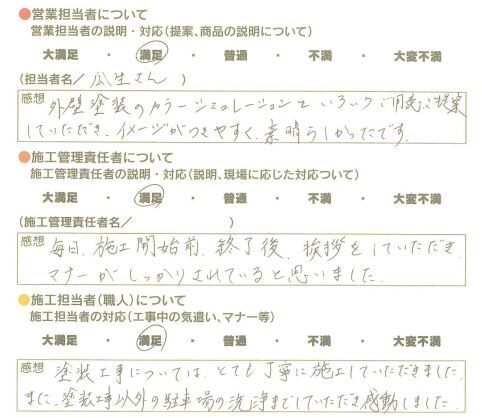 ●営業担当者について
営業担当者の説明・対応(提案、商品の説明について)
大満足 ・ 満足 ・ 普通 ・ 不満 ・ 大変不満
(担当者名/ 瓜生さん )
感想 外壁塗装のカラーシミュレーションを いろいろご用意、ご提案
していただき、イメージがつきやすく、素晴らしかったです。
●施工管理責任者について
施工管理責任者の説明・対応(説明、現場に応じた対応ついて)
大満足 ・ 満足 ・ 普通 ・ 不満 ・ 大変不満
(施工管理責任者名/ )
感想 毎日、施工開始前、終了後、挨拶をしていただき、
マナーがしっかりされていると思いました。
●施工担当者(職人)について
施工担当者の対応(工事中の気遣い、マナー等)
大満足 ・ 満足 ・ 普通 ・ 不満 ・ 大変不満
感想 塗装工事については、とても丁寧に施工していただきました。
また、塗装工事以外の駐車場の洗浄までしていただき感動しました。